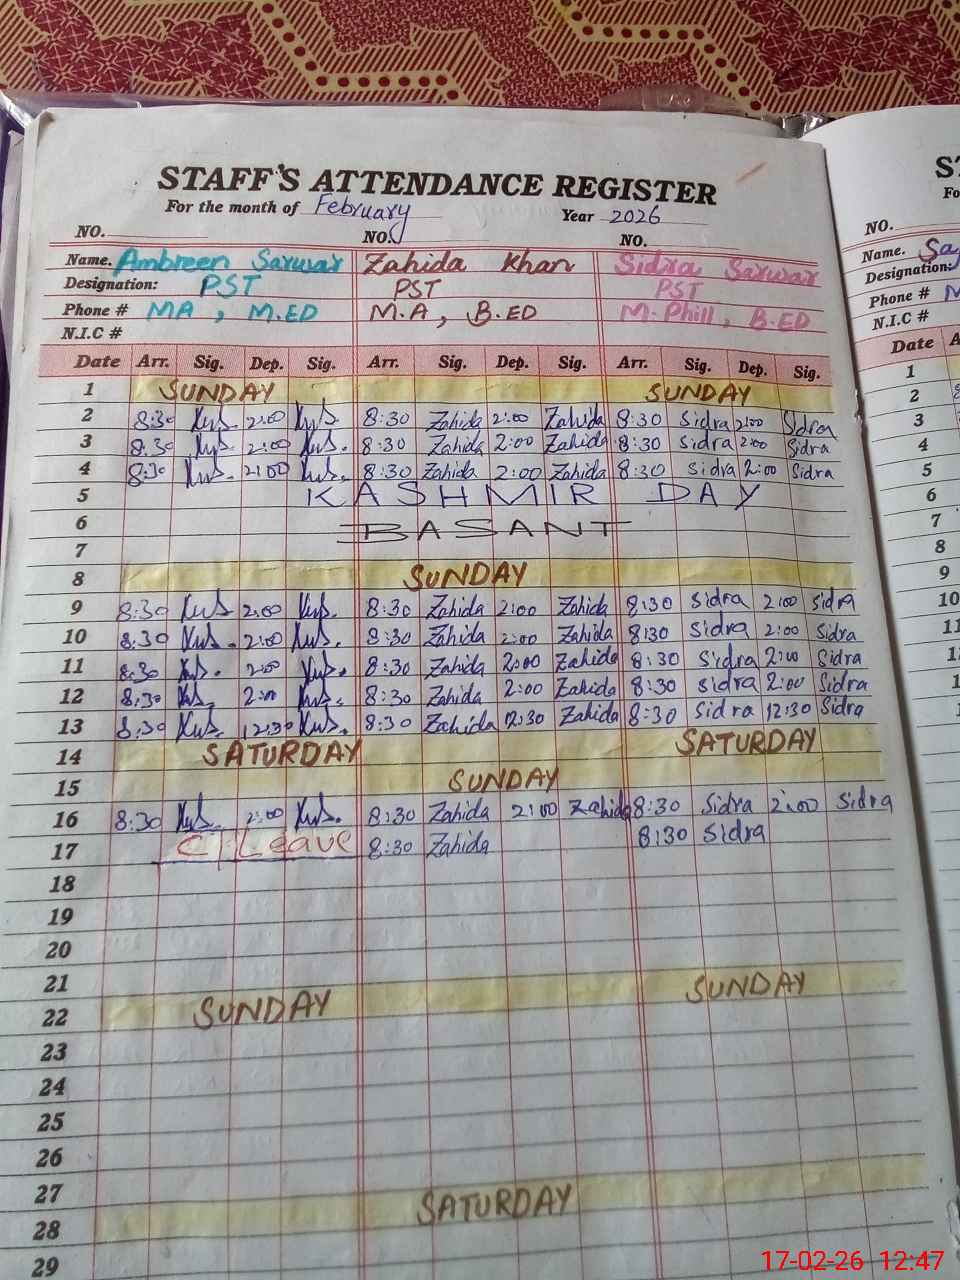 STAFF'S ATTENDANCE REGISTER
For the month of February Year 2026
NO. NO. NO.
Name. Ambreen Sarwar Zahida Khan Sidra Sarwar
Designation: PST PST PST
Phone # MA, M.ED M.A, B.ED M.Phill, B.ED
N.I.C #
Date Arr. Sig. Dep. Sig. Arr. Sig. Dep. Sig. Arr. Sig. Dep. Sig.
1 SUNDAY SUNDAY
2 8:30 2:00 8:30 Zahida 2:00 Zahida 8:30 Sidra 2:00 Sidra
3 8:30 2:00 8:30 Zahida 2:00 Zahida 8:30 Sidra 2:00 Sidra
4 8:30 2:00 8:30 Zahida 2:00 Zahida 8:30 Sidra 2:00 Sidra
5 KASHMIR DAY
6 BASANT
7
8 SUNDAY
9 8:30 2:00 8:30 Zahida 2:00 Zahida 8:30 Sidra 2:00 Sidra
10 8:30 2:00 8:30 Zahida 2:00 Zahida 8:30 Sidra 2:00 Sidra
11 8:30 2:00 8:30 Zahida 2:00 Zahida 8:30 Sidra 2:00 Sidra
12 8:30 2:00 8:30 Zahida 2:00 Zahida 8:30 Sidra 2:00 Sidra
13 8:30 12:30 8:30 Zahida 12:30 Zahida 8:30 Sidra 12:30 Sidra
14 SATURDAY SATURDAY
15 SUNDAY
16 8:30 2:00 8:30 Zahida 2:00 Zahida 8:30 Sidra 2:00 Sidra
17 C Leave 8:30 Zahida 8:30 Sidra
18
19
20
21 SUNDAY
22 SUNDAY
23
24
25
26
27
28 SATURDAY
29
NO.
Name.
Designation:
Phone # M
N.I.C #
Date A
1
2
3
4
5
6
7
8
9
10
17-02-26 12:47